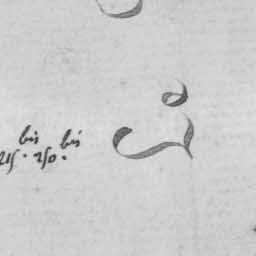 bis bis
215. 250.